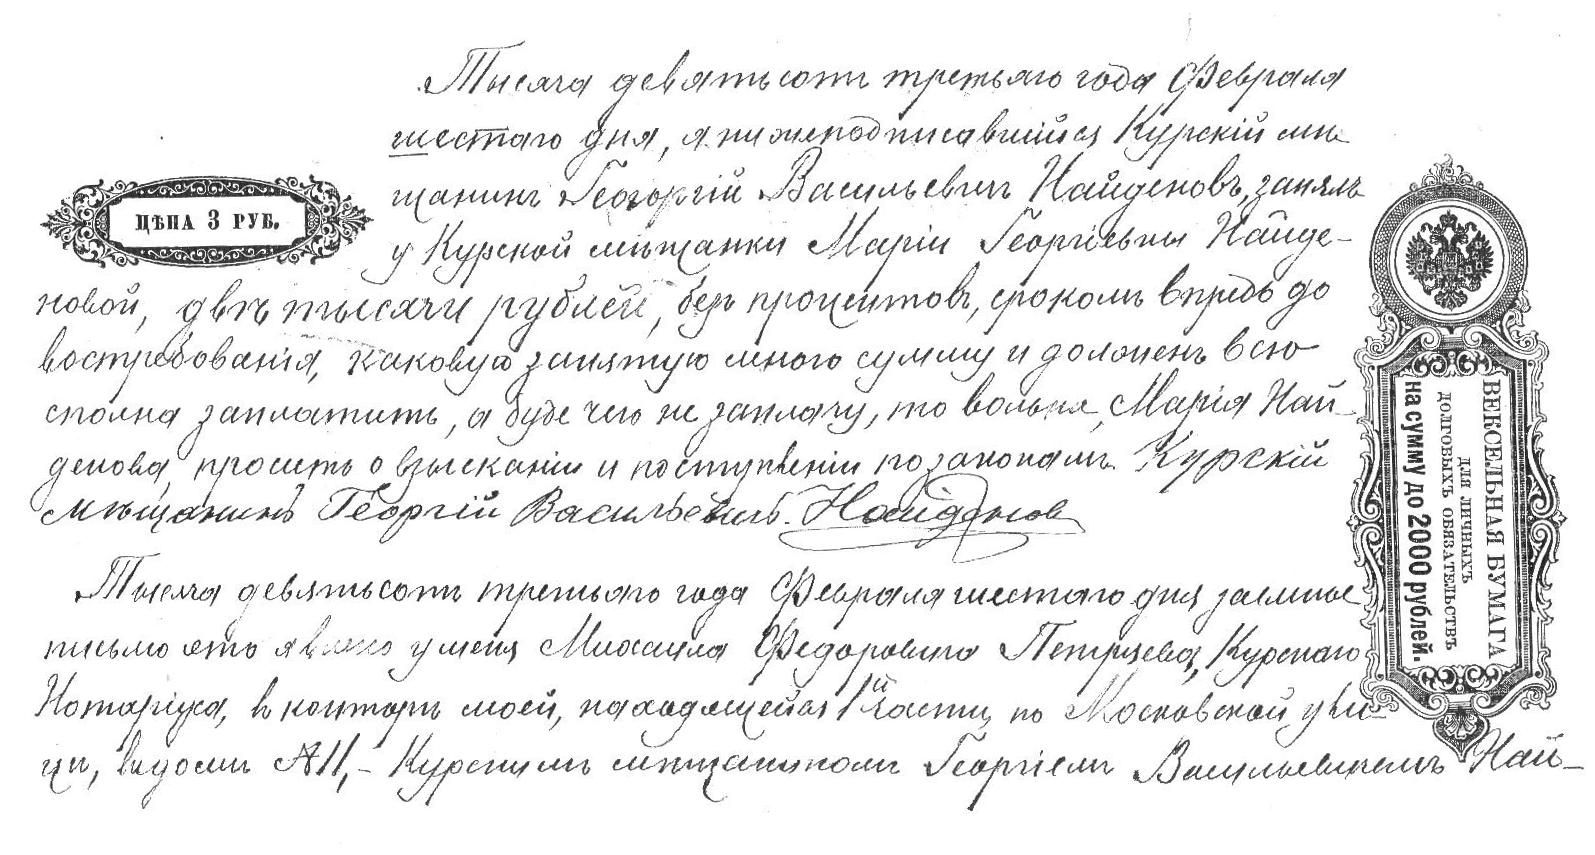 Тысяча девятьсотъ третьяго года Февраля
шестаго дня, я нижеподписавшійся Курскій мѣ-
щанинъ Георгій Васильевичъ Найденовъ, занялъ
ЦѢНА 3 РУБ.
у Курской мѣщанки Маріи Георгіевны Найде-
новой, двѣ тысячи рублей, безъ процентовъ, срокомъ впредь до
востребованія, каковую занятую мною сумму и долженъ всю
сполна заплатить, а буде чего не заплачу, то вольна, Марія Най-
денова, просить о взысканіи и поступленіи по законамъ. Курскій
мѣщанинъ Георгій Васильевичъ Найденов
Тысяча девятьсотъ третьяго года Февраля шестаго дня заемное
письмо это явлено у меня Михаила Федоровича Петрцева, Курскаго
Нотаріуса, въ конторѣ моей, находящейся 1й части, по Московской ули-
цѣ, въ домѣ №11,- Курскимъ мѣщаниномъ Георгіемъ Васильевичемъ Най-
ВЕКСЕЛЬНАЯ БУМАГА
ДЛЯ ЛИЧНЫХЪ
ДОЛГОВЫХЪ ОБЯЗАТЕЛЬСТВЪ
на сумму до 2000 рублей.